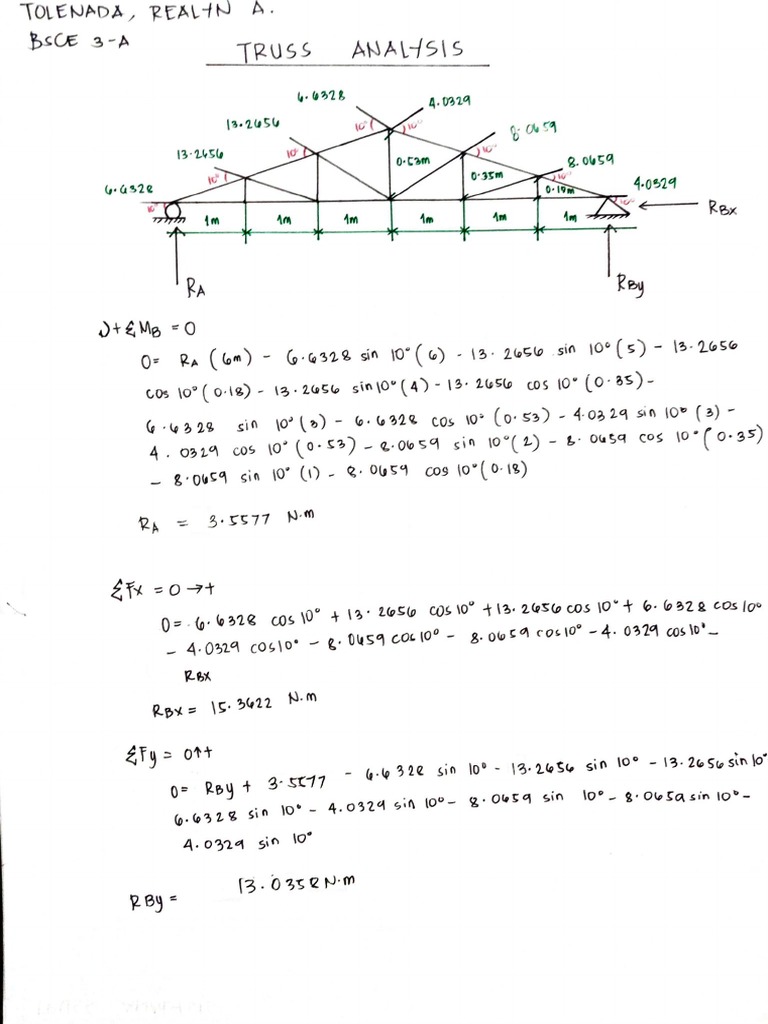 TOLENADA, REALYN A.
BSCE 3-A
TRUSS ANALYSIS
6.6328
4.0329
13.2656
10°
10°
8.0659
13.2656
10°
0.53m
10°
8.0659
10°
0.35m
10°
4.0329
6.6328
0.18m
10°
10°
RBx
1m 1m 1m 1m 1m 1m
RA
RBy
+ΣMB = 0
0= RA (6m) - 6.6328 sin 10° (6) - 13.2656 sin 10° (5) - 13.2656
cos 10° (0.18) - 13.2656 sin10° (4) - 13.2656 cos 10° (0.35) -
6.6328 sin 10° (3) - 6.6328 cos 10° (0.53) - 4.0329 sin 10° (3) -
4.0329 cos 10° (0.53) - 8.0659 sin 10° (2) - 8.0659 cos 10° (0.35)
- 8.0659 sin 10° (1) - 8.0659 cos 10° (0.18)
RA = 3.5577 N.m
ΣFx = 0 →+
0= 6.6328 cos 10° + 13.2656 cos 10° + 13.2656 cos 10° + 6.6328 cos 10°
- 4.0329 cos10° - 8.0659 cos 10° - 8.0659 cos 10° - 4.0329 cos 10° -
RBx
RBx = 15.3622 N.m
ΣFy = 0↑+
0= RBy + 3.5577 - 6.6328 sin 10° - 13.2656 sin 10° - 13.2656 sin 10°
6.6328 sin 10° - 4.0329 sin 10° - 8.0659 sin 10° - 8.0659 sin 10° -
4.0329 sin 10°
RBy = 13.0358 N.m